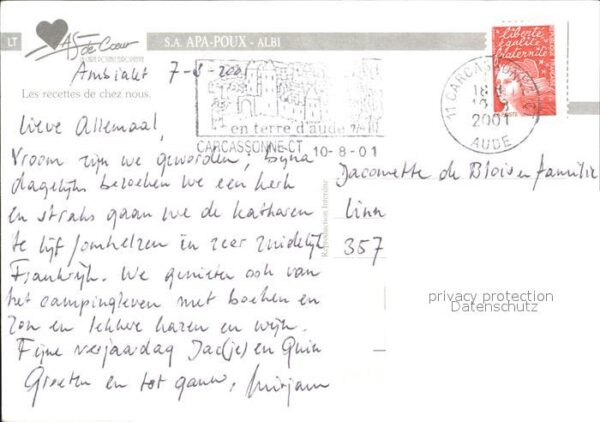 LT
AS de Cœur
S.A. APA-POUX - ALBI
Ambialet 7-8-2001
Les recettes de chez nous.
Lieve Allemaal,
Vroom zijn we geworden, bijna
dagelijks bezoeken we een kerk
en straks gaan we de katharen
te lijf /omhelzen in zeer zuidelijk
Frankrijk. We genieten ook van
het campingleven met boeken en
zon en lekkere kazen en wijn.
Fijne verjaardag Jac(je) en Quin
Groeten en tot gauw, Mirjam
en terre d'aude
CARCASSONNE CT 10-8-01
Reproduction Interdite
liberté
égalité
fraternité
11 CARCASSONNE CT
18 H
10 8
2001
AUDE
Jacomette de Blois en familie
Linn
357
privacy protection
Datenschutz